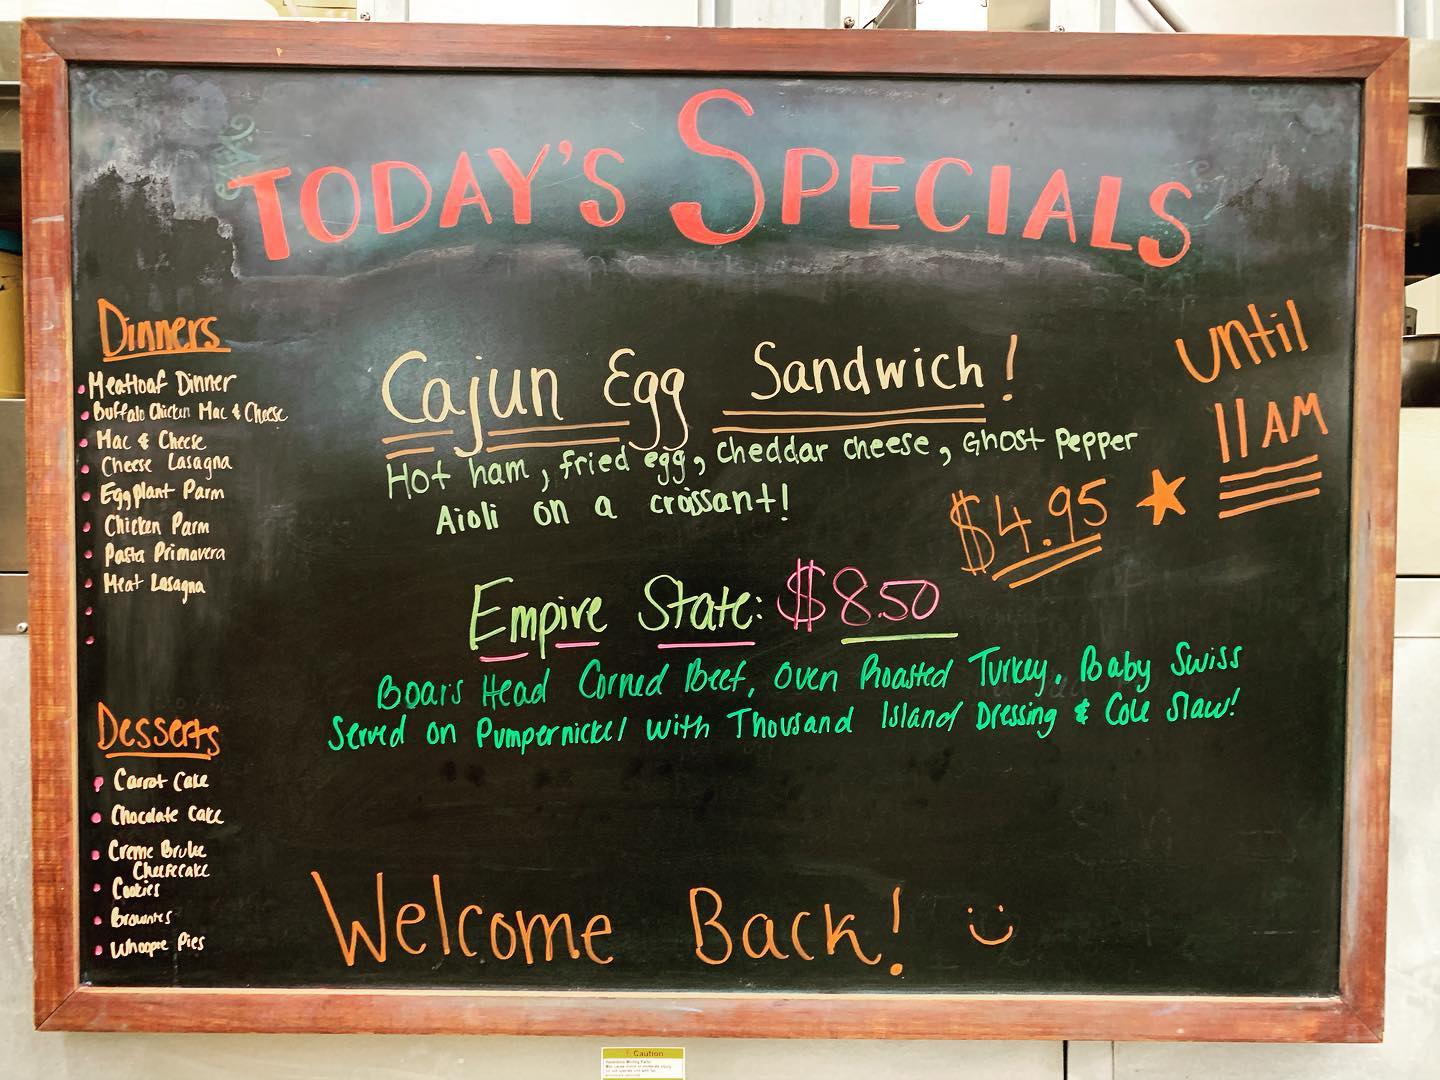 TODAY'S SPECIALS
Dinners
Meatloaf Dinner
Buffalo Chicken Mac & Cheese
Mac & Cheese
Cheese Lasagna
Eggplant Parm
Chicken Parm
Pasta Primavera
Meat Lasagna
Desserts
Carrot Cake
Chocolate Cake
Creme Brulee
Cheesecake
Cookies
Brownies
Whoopie Pies
Cajun Egg Sandwich!
Hot ham, fried egg, cheddar cheese, Ghost Pepper
Aioli on a croissant!
$4.95
until
11AM
Empire State: $8.50
Boars Head Corned Beef, Oven Roasted Turkey, Baby Swiss
Served on Pumpernickel with Thousand Island Dressing & Cole Slaw!
Welcome Back! :)
Caution